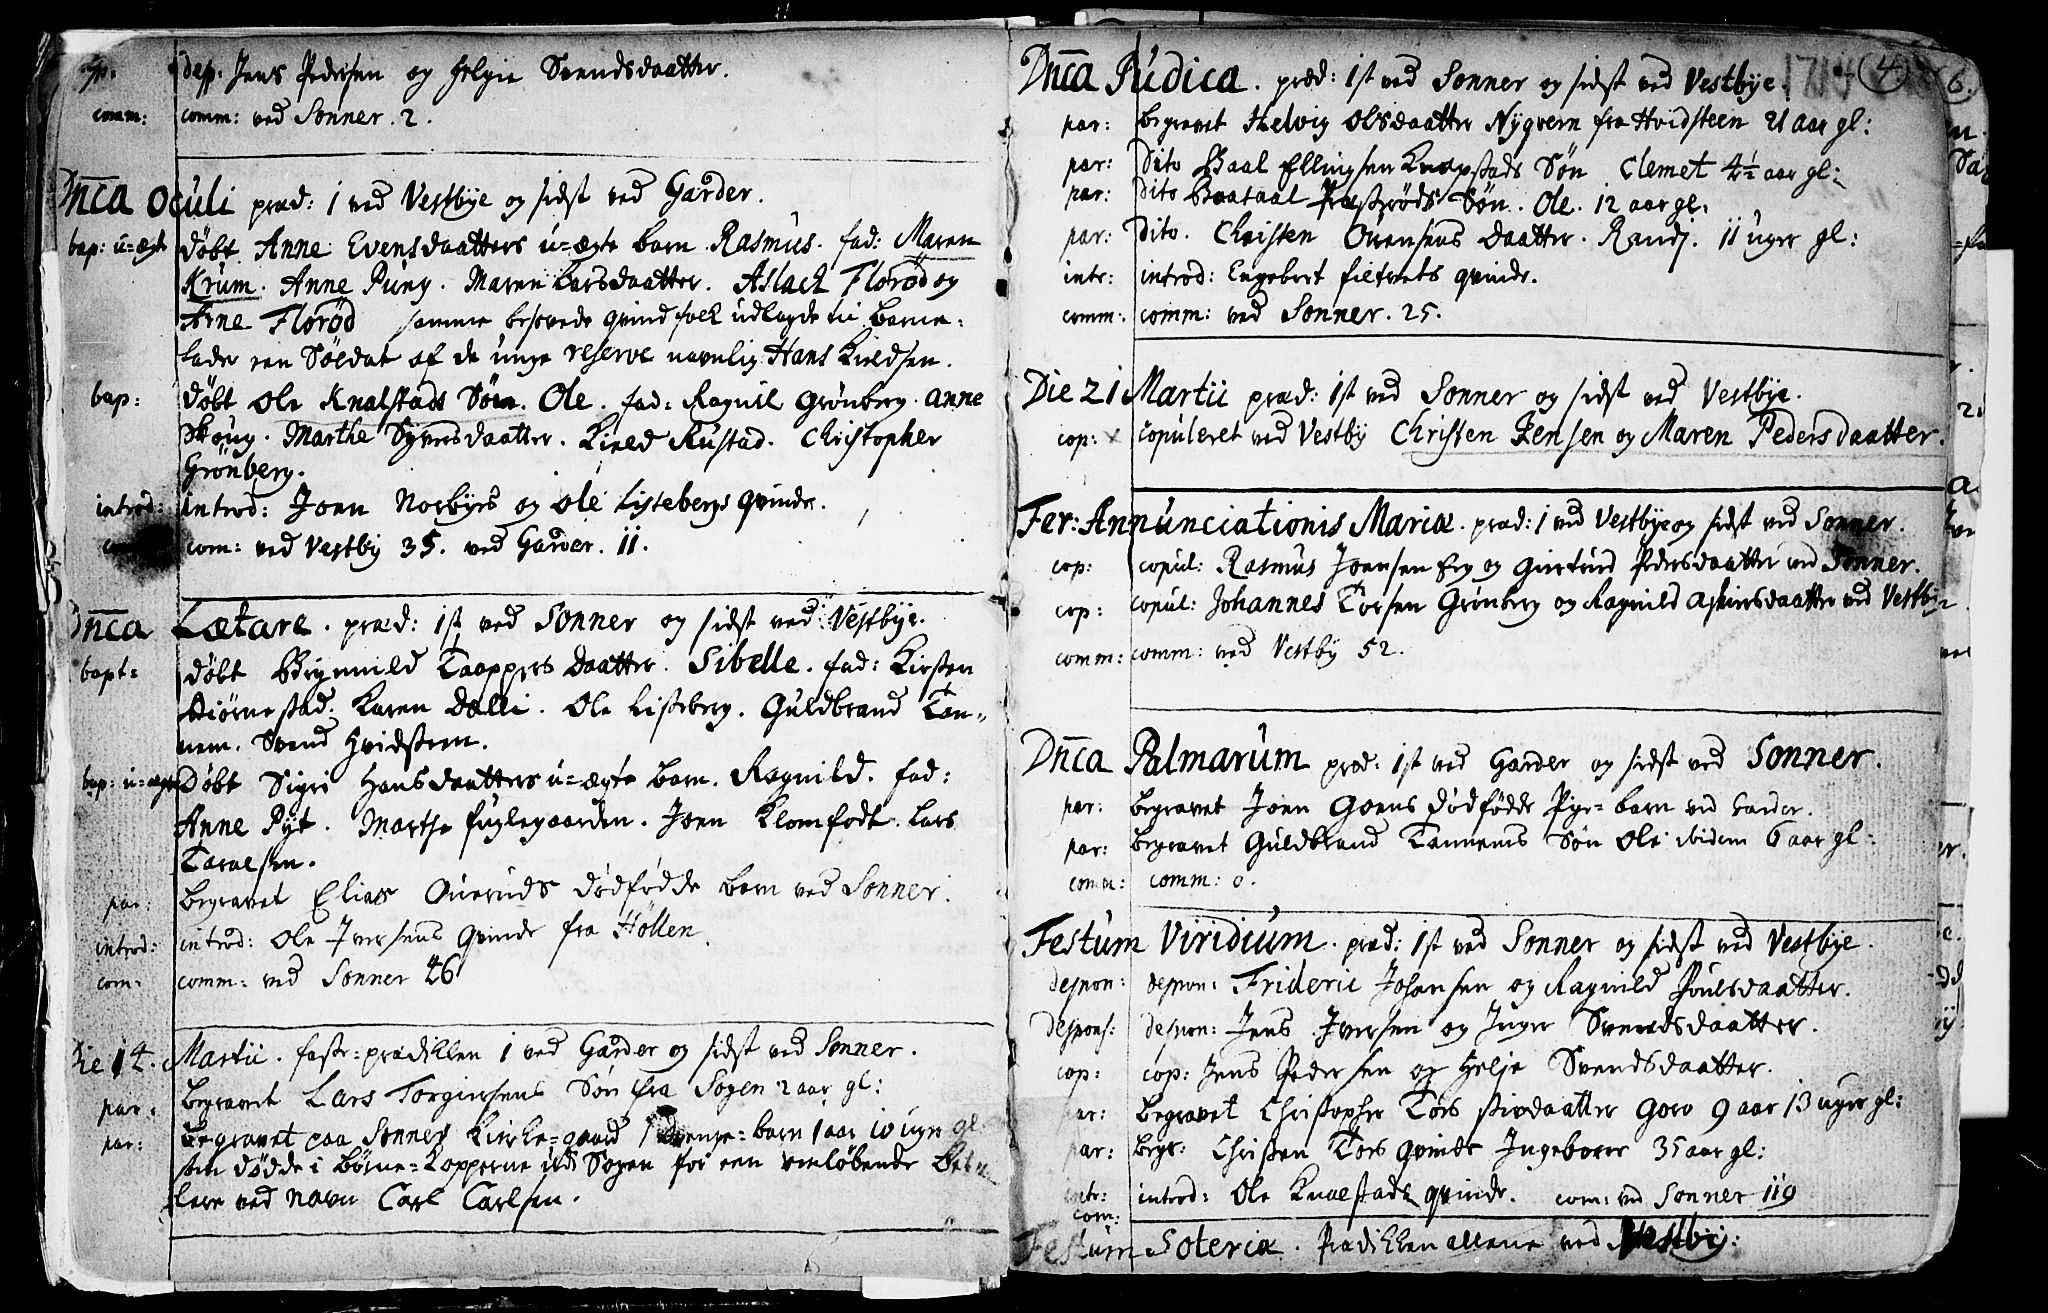 desp: Jens Pedersen og Helgie Svendsdaatter.
comm: comm: ved Sonner. 2.
Dn̄ca Oculi præd: 1 ved Vestbye og sidst ved Garder.
bap: u=ægte døbt Anne Evensdaatters u=ægte barn Rasmus. fad: Maren
Krum. Anne Puny. Maren Larsdaatter. Aslach Florød og
Arne Florød samme besovede qvindfolk udlagde til barne=
fader een Soldat af de unge reserve navnlig Hans Kieldsen.
bap: døbt Ole Knalstads Søn. Ole. fad: Ragnil Grønberg. Anne
Skoug. Marthe Syversdaatter. Kield Rustad. Christopher
Grönberg.
introd: introd: Joen Norbyes og Ole Listebergs qvinde.
com: ved Vestby 35. ved Garder. 11.
Dn̄ca Lætare. præd: 1st ved Sonner og sidst ved Vestbye.
bapt: døbt Brynnild Taappers daatter. Sibelle. fad: Kirsten
Biørnestad. Karen Dælli. Ole Listeberg. Guldbrand Tan=
nem. Svend Hvidsteen.
bap: u=ægte Døbt Sigri Hansdaatters u=ægte barn. Ragnild. fad:
Anne Pyt. Marthe Fuglegaarden. Joen Klomfodt. Lars
Taralsen.
par: begravet Elias Oueruds dødfødde barn ved Sonner.
introd: introd: Ole Iversens qvinde fra Hölen.
com: comm: ved Sonner 46
Die 14. Martii. faste=prædikken 1 ved Garder og sidst ved Sonner.
par: begravet Lars Torgiersens Søn fra Sogen 2 aar gl:
par: begravet paa Sonner Kircke=gaard 1 drenge=barn 1 aar 10 uger gl.
som døde i börne=kopperne i Sogen for een omløbende
lere ved navn Carl Carlsen.
1714 4 6.
Dn̄ca Judica. præd: 1st ved Sonner og sidst ved Vestbye.
par: begravet Helvig Olsdaatter Nygvern fra Hvidsteen 21 aar gl:
par: Dito Paal Ellingsen Knapstads Søn Clemet 4½ aar gl:
par: Dito Præsteröds Søn. Ole. 12 aar gl.
par: Dito. Christen Ouensens daatter. Randj. 11 uger gl:
intr: introd: Engebort qvinde.
comm: comm: ved Sonner. 25.
Die 21 Martii præd: 1st ved Sonner og sidst ved Vestbye.
cop: x copuleret ved Vestby Christen Jensen og Maren Pedersdaatter.
Fer: Annunciationis Mariæ. præd: 1 ved Vestbye og sidst ved Sonner.
cop: copul: Rasmus Joensen Eeg og Giertrud Pedersdaatter ved Sonner.
cop: copul: Johannes Torsen Grønberg og Ragnild ved Vestbye
comm: comm: ved Vestby 52.
Dn̄ca Palmarum præd: 1st ved Garder og sidst ved Sonner.
par: begravet Joen Goens dödfödde Pige=barn ved Garder.
par: begravet Guldbrand Tannems Søn Ole ibidem 6 aar gl:
comm: comm: 0.
Festum Viridium. præd: 1st ved Sonner og sidst ved Vestbye.
despon: despon: Frideric Johansen og Ragnild Poulsdaatter.
despons: despon: Jens Iversen og Inger Svendsdaatter.
cop: cop: Jens Pedersen og Helje Svendsdaatter.
par: begravet Christopher Tors stivdaatter Goro 9 aar 13 uger gl:
par: begr: Christen Tors qvinde Ingeborer 35 aar gl:
intr: introd: Ole Knalstads qvinde. com: ved Sonner 119
com:
Festum Soteriæ. Prædikken allene ved Vestby: